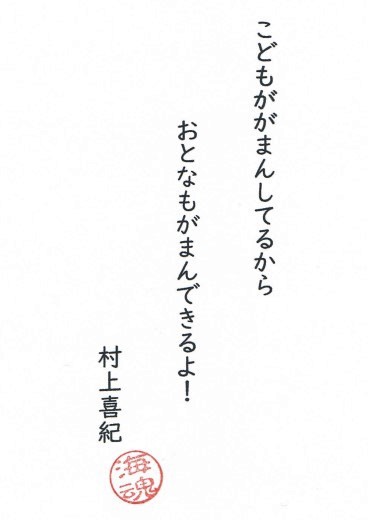 こどもががまんしてるから
おとなもがまんできるよ！
村上喜紀
海魂